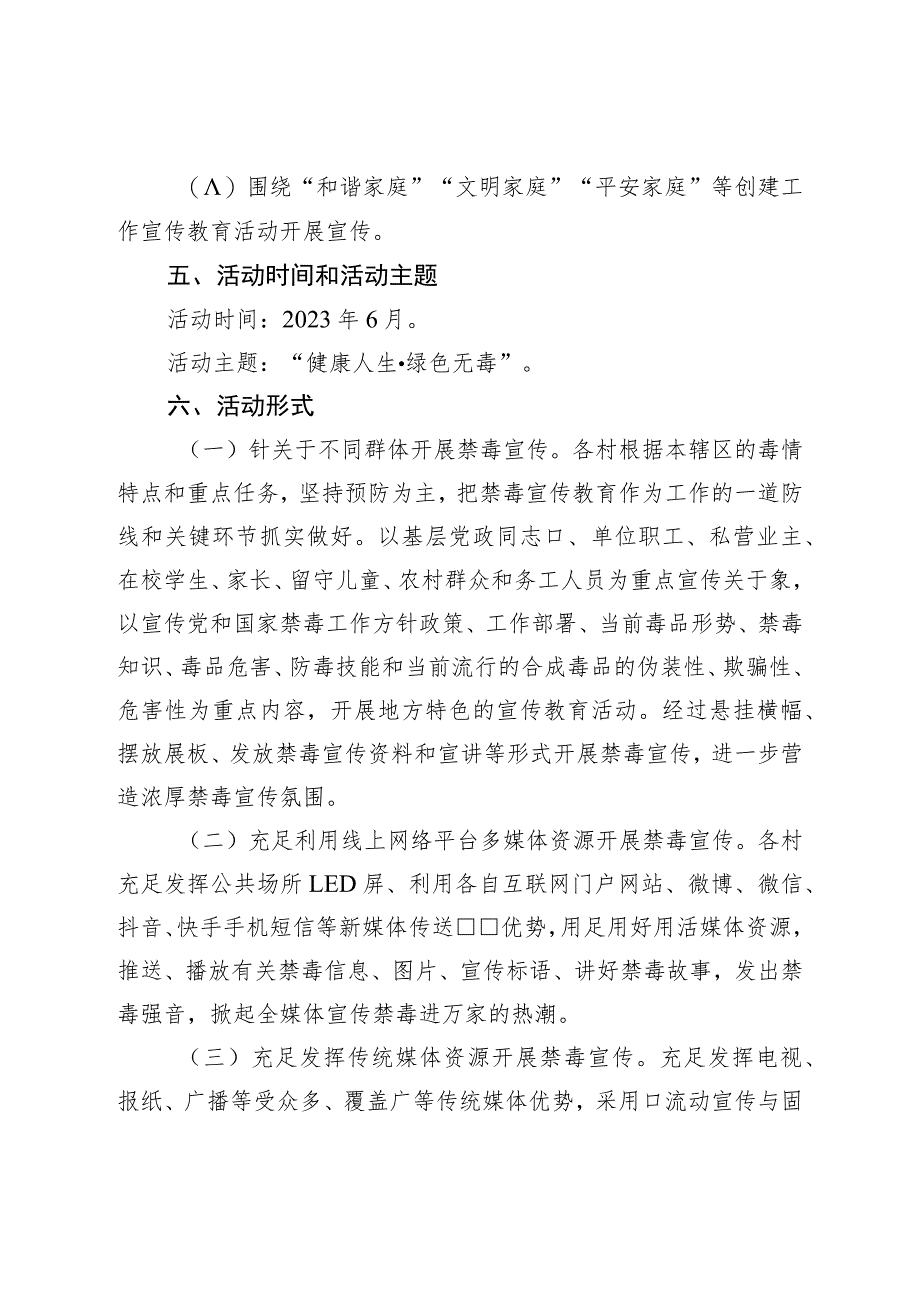 （Λ）围绕“和谐家庭”“文明家庭”“平安家庭”等创建工
作宣传教育活动开展宣传。
五、活动时间和活动主题
活动时间：2023 年 6 月。
活动主题：“健康人生•绿色无毒”。
六、活动形式
（一）针关于不同群体开展禁毒宣传。各村根据本辖区的毒情
特点和重点任务，坚持预防为主，把禁毒宣传教育作为工作的一道防
线和关键环节抓实做好。以基层党政同志口、单位职工、私营业主、
在校学生、家长、留守儿童、农村群众和务工人员为重点宣传关于象，
以宣传党和国家禁毒工作方针政策、工作部署、当前毒品形势、禁毒
知识、毒品危害、防毒技能和当前流行的合成毒品的伪装性、欺骗性、
危害性为重点内容，开展地方特色的宣传教育活动。经过悬挂横幅、
摆放展板、发放禁毒宣传资料和宣讲等形式开展禁毒宣传，进一步营
造浓厚禁毒宣传氛围。
（二）充足利用线上网络平台多媒体资源开展禁毒宣传。各村
充足发挥公共场所 LED 屏、利用各自互联网门户网站、微博、微信、
抖音、快手手机短信等新媒体传送□□优势，用足用好用活媒体资源，
推送、播放有关禁毒信息、图片、宣传标语、讲好禁毒故事，发出禁
毒强音，掀起全媒体宣传禁毒进万家的热潮。
（三）充足发挥传统媒体资源开展禁毒宣传。充足发挥电视、
报纸、广播等受众多、覆盖广等传统媒体优势，采用口流动宣传与固